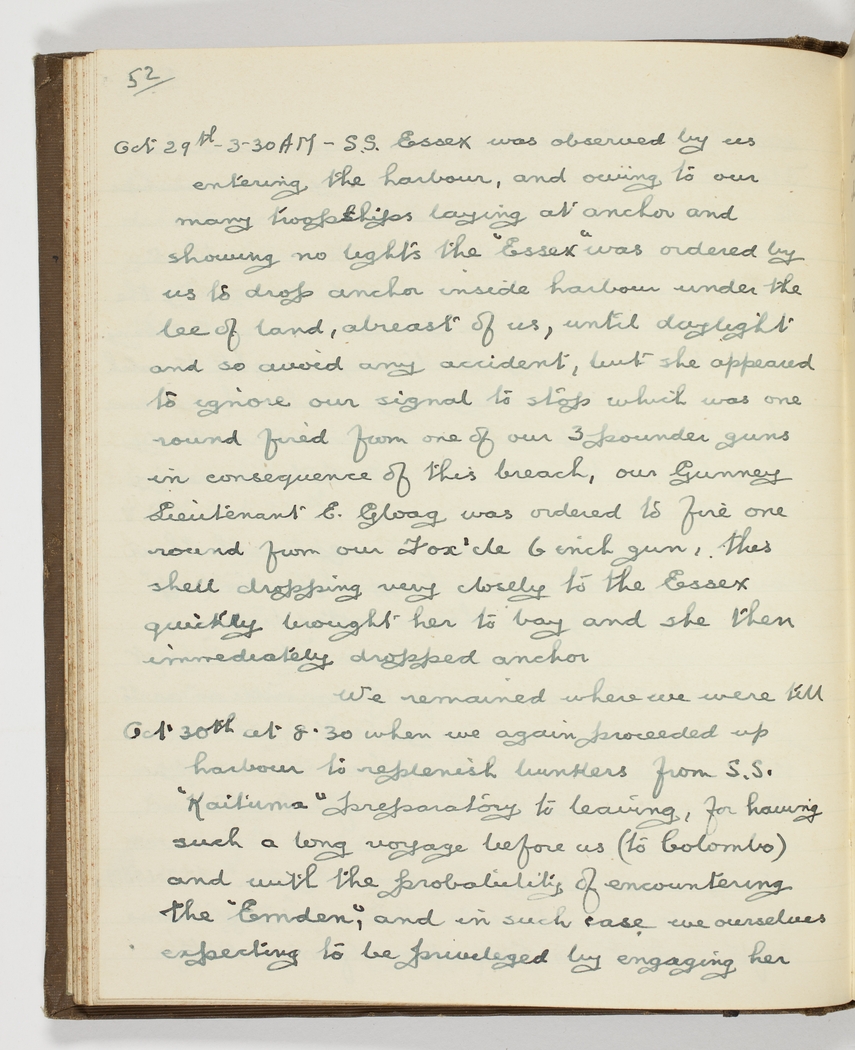 52
Oct 29th - 3-30 AM - S.S. Essex was observed by us
entering the harbour, and owing to our
many troopships laying at anchor and
showing no lights the "Essex" was ordered by
us to drop anchor inside harbour under the
lee of land, abreast of us, until daylight
and so avoid any accident, but she appeared
to ignore our signal to stop which was one
round fired from one of our 3 pounder guns
in consequence of this breach, our Gunney
Lieutenant E. Gloag was ordered to fire one
round from our Fox'cle 6 inch gun, this
shell dropping very closely to the Essex
quickly brought her to bay and she then
immediately dropped anchor
We remained where we were till
Oct 30th at 8.30 when we again proceeded up
harbour to replenish bunkers from S.S.
"Kaituna" preparatory to leaving, for having
such a long voyage before us (to Colombo)
and with the probability of encountering
the "Emden", and in such case we ourselves
expecting to be privileged by engaging her